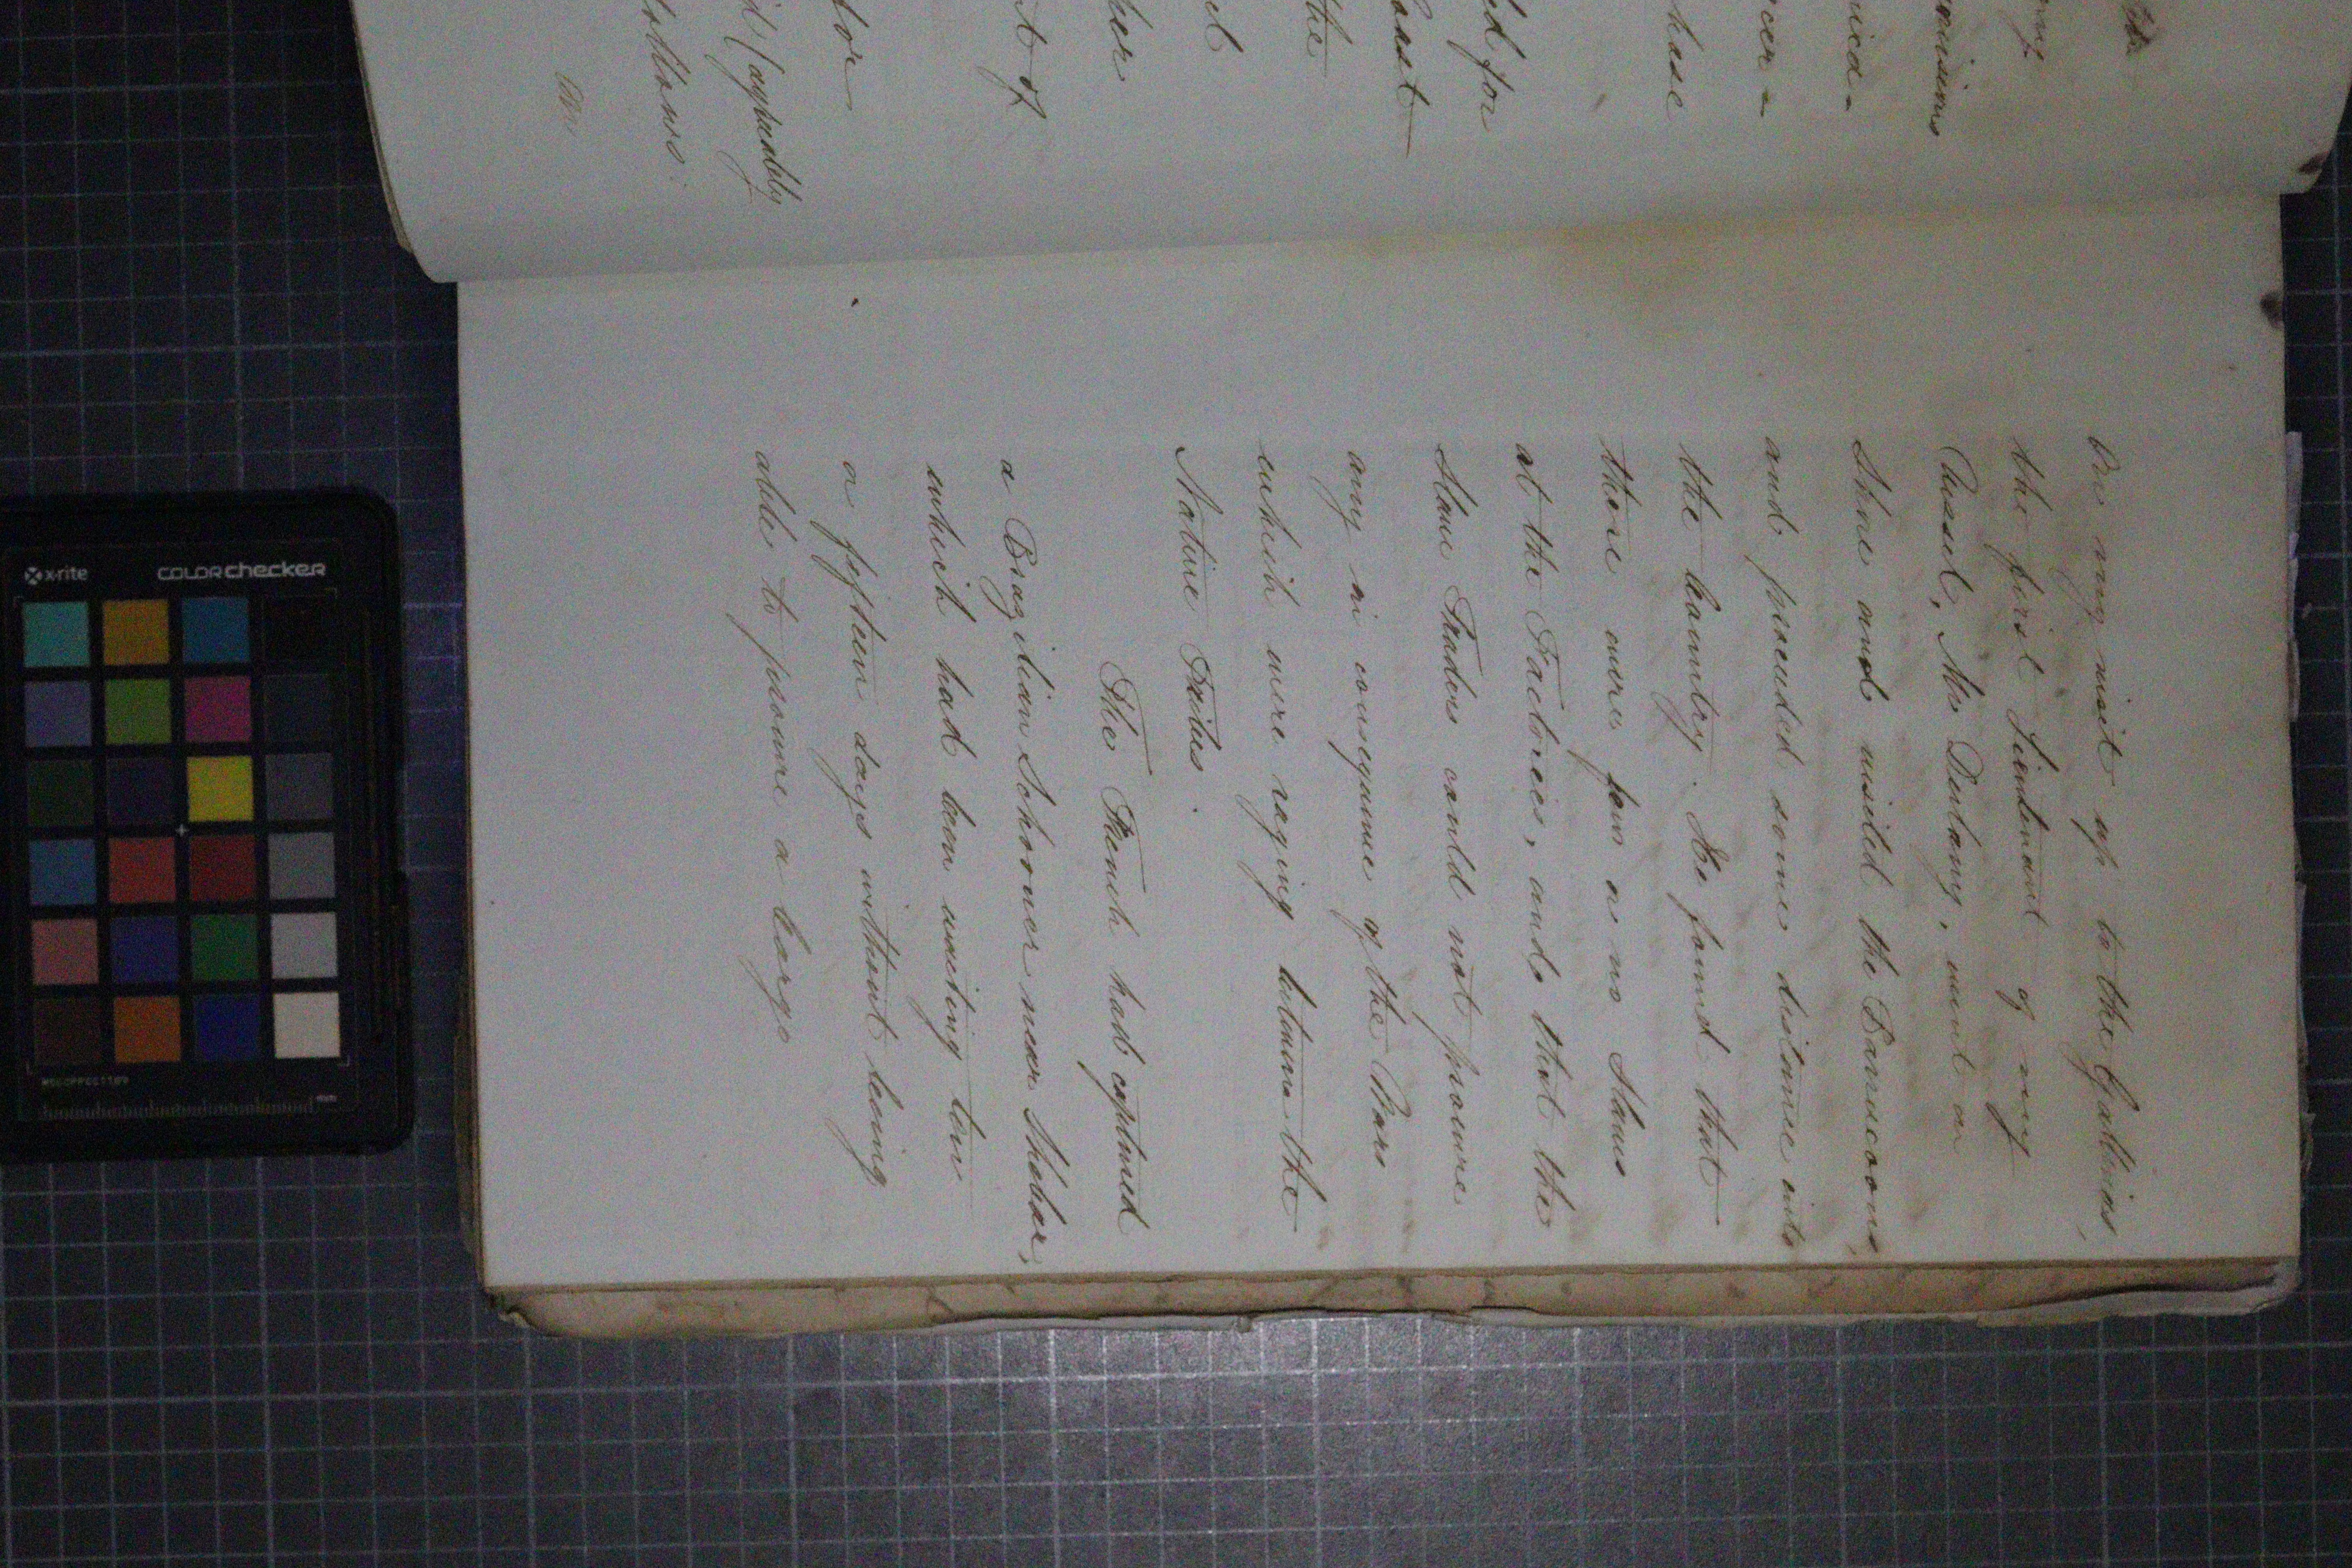 On my visit up to the Gallinas,
the first Lieutenant of my
Vessel, Mr Dulany, went on
Shore and visited the Barracoons,
and proceeded some distance into
the Country. He found that
there were few or no Slaves
at the Factories, and that the
Slave Traders could not procure
any in consequence of the Wars
which were raging between the
Native Tribes.
The French had captured
a Brazilian Schooner near Shebar,
which had been waiting ten
or fifteen days without being
able to procure a Cargo
ed for
the
her
nt of
tor
d (agreeably
follows:
x-rite
COLORchecker
mm